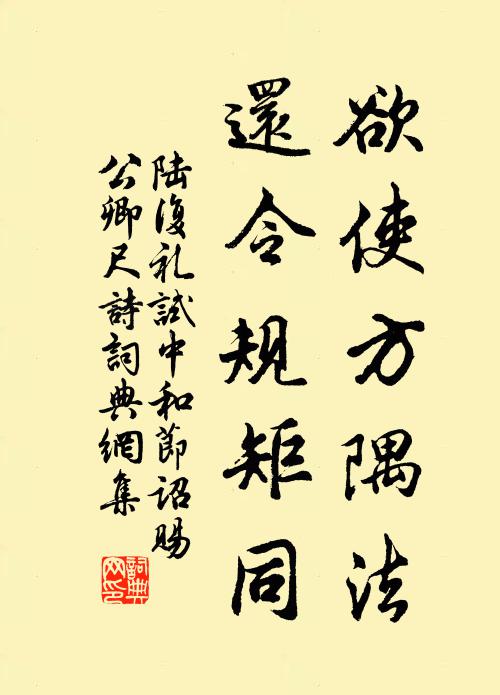 欲使方隅法
還令規矩同
陸復礼試中和節詔賜
公卿尺詩詞典網集
詞典网印